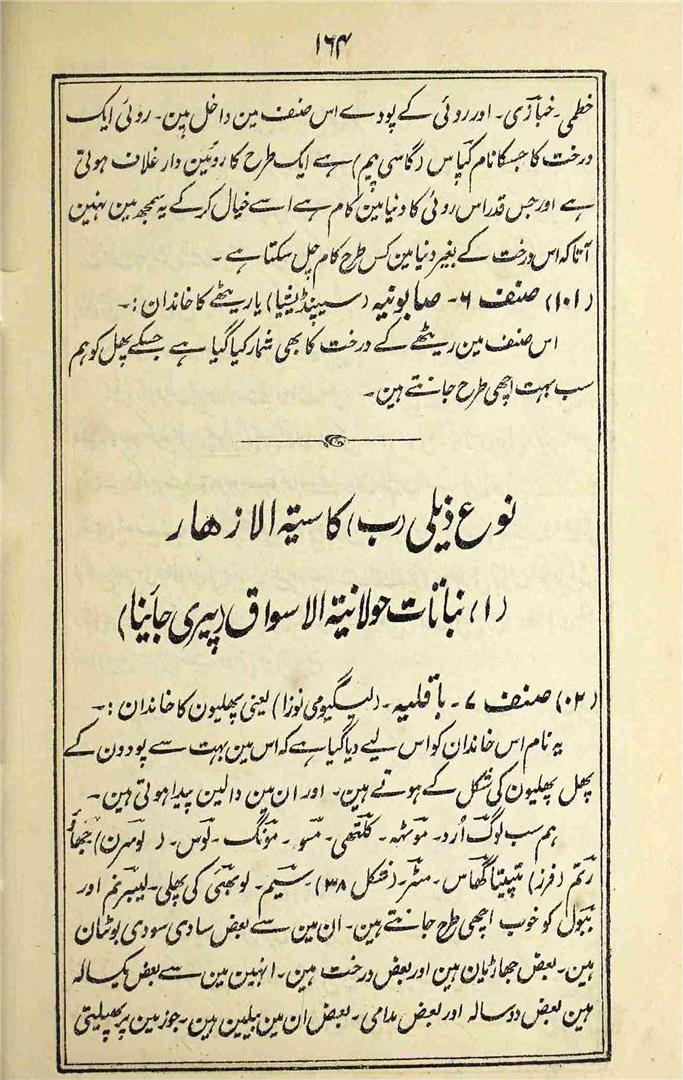 ۱۶۴
خطمی۔ خبازی۔ اور روئی کے پودے اس صنف مین داخل ہین۔ روئی ایک
درخت کا جسکا نام کپاس (گاسی پیم) ہے ایک طرح کا روئین دار غلاف ہوتی
ہے اور جس قدر اس روئی کا دنیا مین کام ہے اسے خیال کرکے یہ سمجھ مین نہین
آتا کہ اس درخت کے بغیر دنیا مین کس طرح کام چل سکتا ہے۔
(۱۰۱) صنف ۶۔ صابونیہ (سیپنڈیشیا) یا ریٹھے کا خاندان :۔
اس صنف مین ریٹھے کے درخت کا بھی شمار کیا گیا ہے جسکے پھل کو ہم
سب بہت اچھی طرح جانتے ہین۔
نوع ذیلی (ب) کاسیتہ الازھار
(۱) نباتات حولانیتہ الاسواق (پیری جائینا)
(۰۲) صنف ۷۔ باقلیہ۔ (لیگیومی نوزا) یعنی پھلیون کا خاندان :۔
یہ نام اس خاندان کو اس لیے دیا گیا ہے کہ اس مین بہت سے پودون کے
پھل پھلیون کی شکل کے ہوتے ہین۔ اور ان مین دالین پیدا ہوتی ہین۔
ہم سب لوگ اُرد۔ موٹھ۔ کلتھی۔ مسو۔ مونگ۔ لوس۔ (لوسرن) جھاؤ
رتم (فرز) پتیتا گھاس۔ مٹر۔ (شکل ۳۸) سیم۔ لوبھیٔ کی پھلی۔ لیبرنم اور
ببول کو خوب اچھی طرح جانتے ہین۔ ان مین سے بعض سادی سودی بوٹیان
ہین۔ بعض جھاڑیان ہین اور بعض درخت ہین۔ انہین مین سے بعض یکسالہ
ہین بعض دو سالہ اور بعض مدامی۔ بعض ان مین بیلین ہین۔ جو زمین پر پھیلیتی